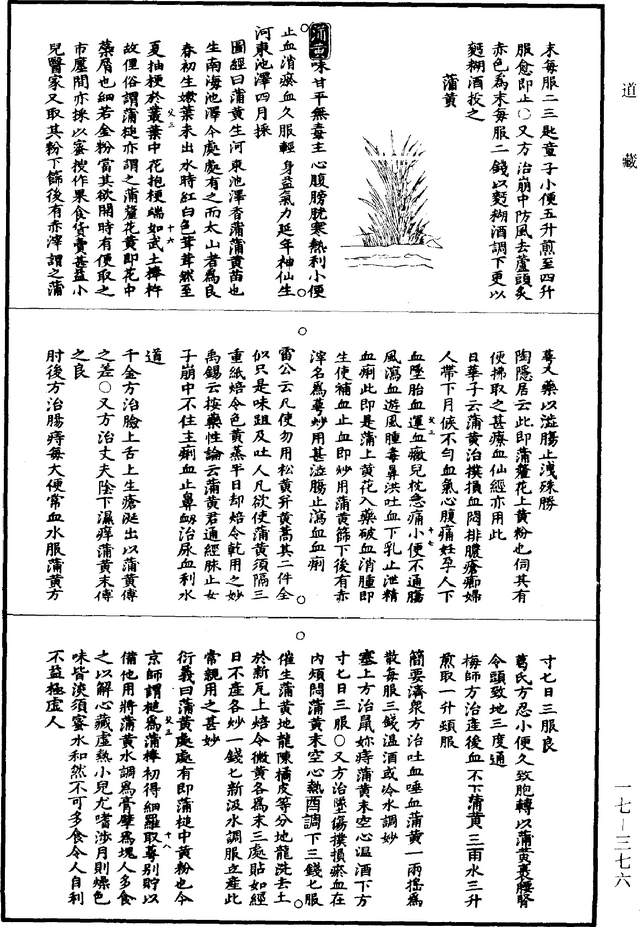 道藏
末每服二三匙童子小便五升煎至四升
服愈即止○又方治崩中防風去蘆頭炙
赤色為末每服二錢以麪糊酒調下更以
麪糊酒投之
蒲黃
蒲黃味甘平無毒主心腹膀胱寒熱利小便
止血消瘀血久服輕身益氣力延年神仙生
河東池澤四月採
圖經曰蒲黃生河東池澤香蒲蒲黃苗也
生南海池澤今處處有之而太山者為良
春初生嫩葉未出水時紅白色茸茸然至
夏抽梗於叢葉中花抱梗端如武士棒杵
故俚俗謂蒲槌亦謂之蒲釐花黃即花中
蘂屑也細若金粉當其欲開時有便取之
市廛間亦採以蜜搜作果食貨賣甚益小
兒醫家又取其粉下篩後有赤滓謂之蒲
萼入藥以澁腸止洩殊勝
陶隱居云此即蒲釐花上黃粉也伺其有
便拂取之甚療血仙經亦用此
日華子云蒲黃治撲損血悶排膿瘡癤婦
人帶下月候不勻血氣心腹痛妊孕人下
血墜胎血運血癥兒枕急痛小便不通腸
風瀉血遊風腫毒鼻洪吐血下乳止泄精
血痢此即是蒲上黃花入藥破血消腫即
生使補血止血即炒用蒲黃篩下後有赤
滓名為萼炒用甚澁腸止瀉血血痢
雷公云凡使勿用松黃并黃蒿其二件全
似只是味跙及吐人凡欲使蒲黃須隔三
重紙焙令色黃蒸半日却焙令乾用之妙
禹錫云按藥性論云蒲黃君通經脉止女
子崩中不住主痢血止鼻衂治尿血利水
道
千金方治瞼上舌上生瘡涎出以蒲黃傅
之差○又方治丈夫陰下濕痒蒲黃末傅
之良
肘後方治腸痔每大便常血水服蒲黃方
寸七日三服良
葛氏方忍小便久致胞轉以蒲黃裹腰腎
令頭致地三度通
梅師方治產後血不下蒲黃三兩水三升
煎取一升頓服
簡要濟衆方治吐血唾血蒲黃一兩搗為
散每服三錢溫酒或冷水調妙
塞上方治鼠妳痔蒲黃末空心溫酒下方
寸七日三服○又方治墜傷撲損瘀血在
內煩悶蒲黃末空心熱酒調下三錢七服
催生蒲黃地龍陳橘皮等分地龍洗去土
於新瓦上焙令微黃各為末三處貼如經
日不產各炒一錢七新汲水調服立產此
常親用之甚妙
衍義曰蒲黃處處有即蒲槌中黃粉也今
京師謂槌為蒲棒初得細羅取萼別貯以
備他用將蒲黃水調為膏擘為塊人多食
之以解心藏虛熱小兒尤嗜涉月則燥色
味皆淡須蜜水和然不可多食令人自利
不益極虛人
一七—三七六